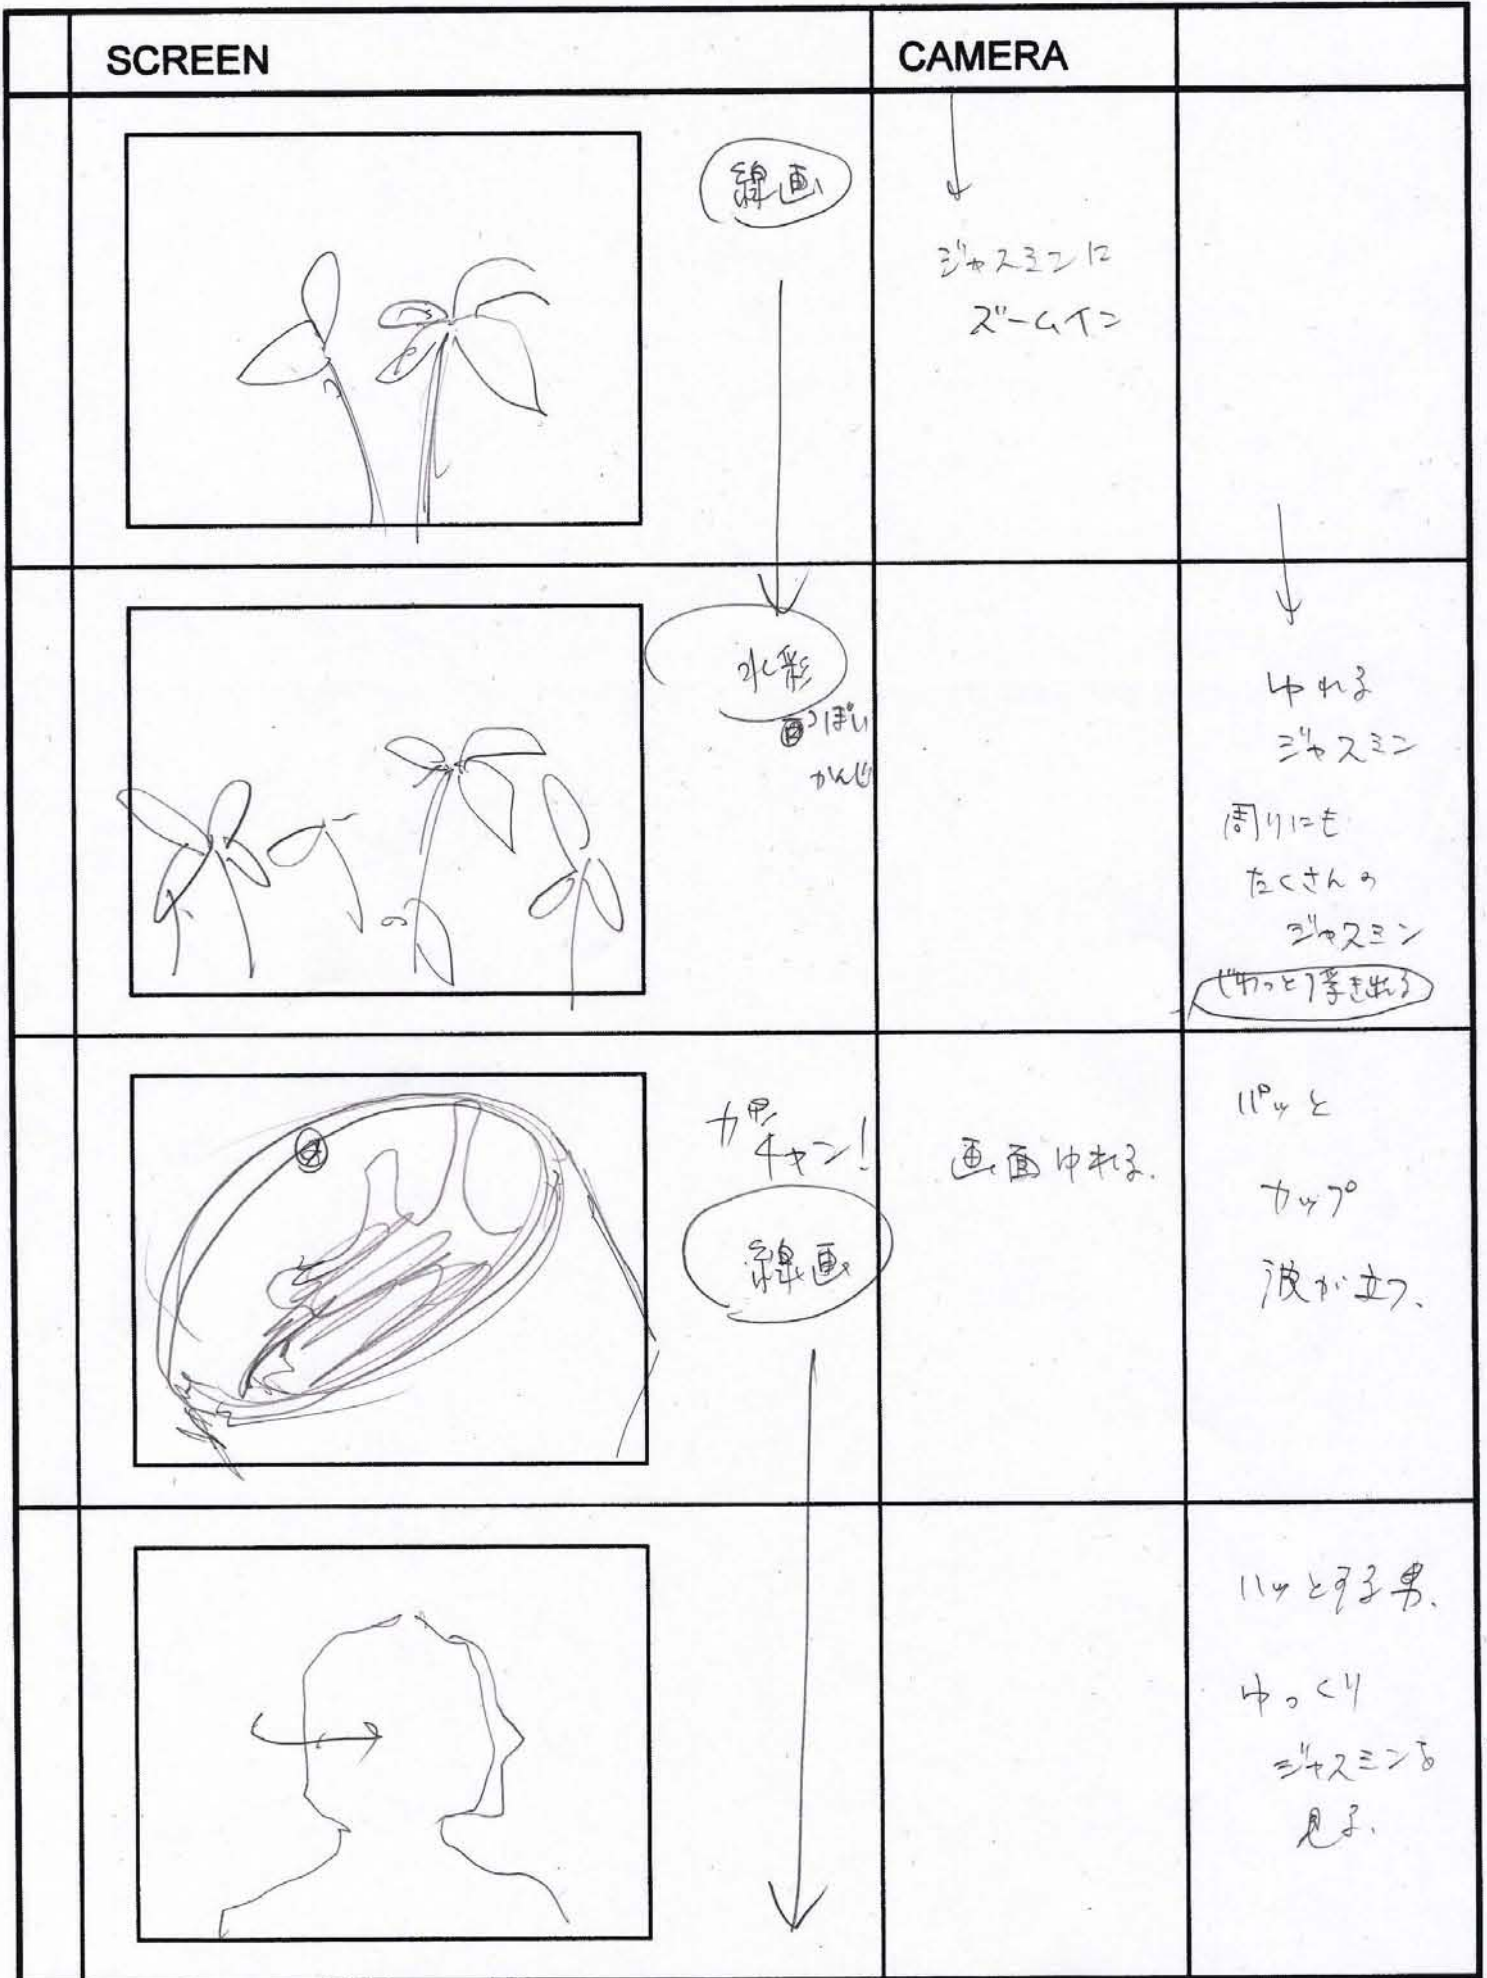 SCREEN
CAMERA
線画
ジャスミンに
ズームイン
水彩
画っぽい
かんじ
ゆれる
ジャスミン
周りにも
たくさんの
ジャスミン
じわっと浮き出る
ガチャン!
線画
画面ゆれる.
パッと
カップ
波が立つ、
ハッとする男、
ゆっくり
ジャスミンを
見る、